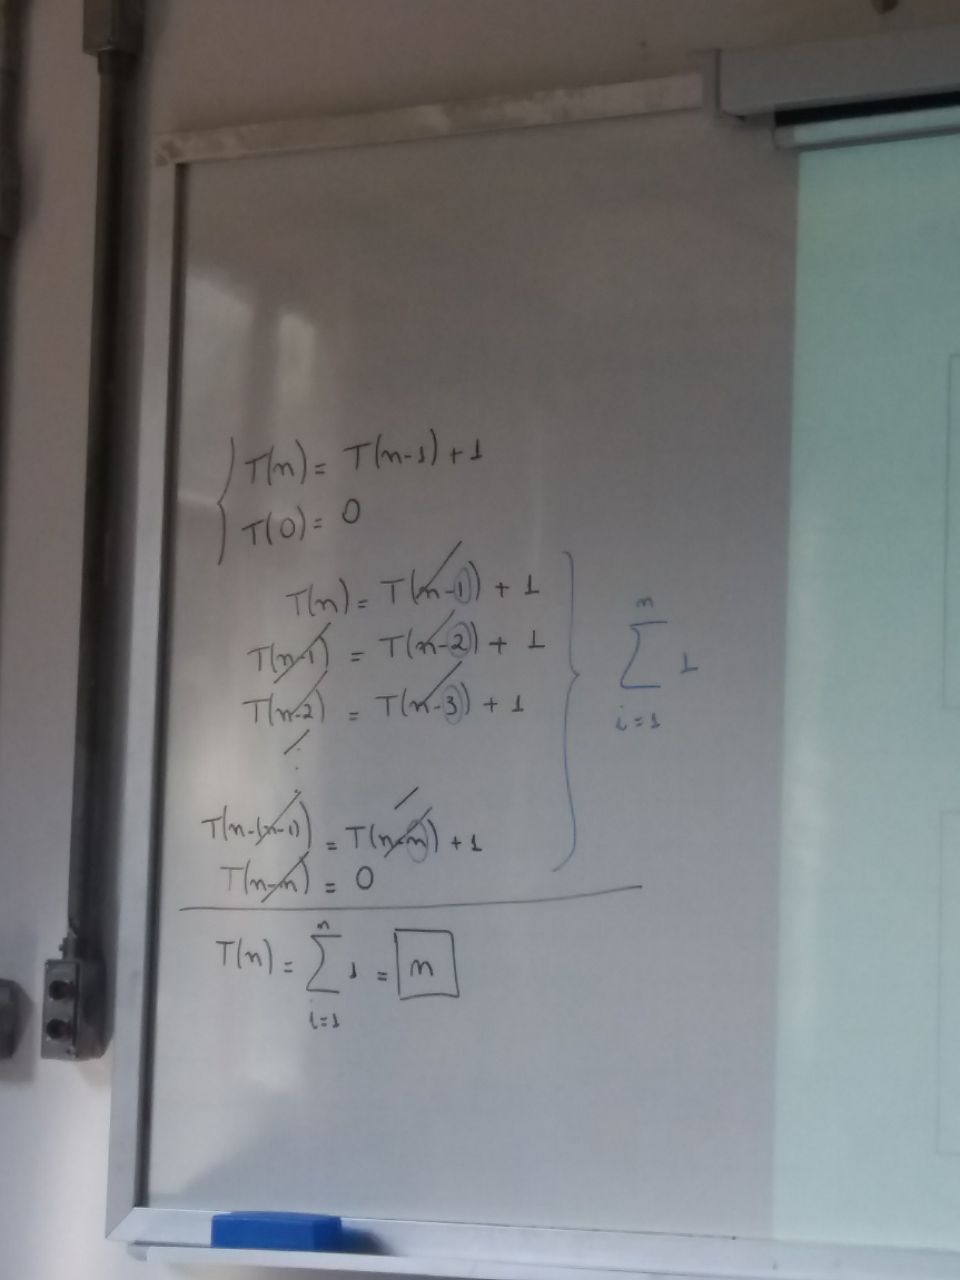 T(n) = T(n-1) + 1
T(0) = 0
T(n) = T(n-1) + 1
T(n-1) = T(n-2) + 1
T(n-2) = T(n-3) + 1
⋮
T(n-(n-1)) = T(n-n) + 1
T(n-n) = 0
n
∑ 1
i=1
n
T(n) = ∑ 1 = n
i=1